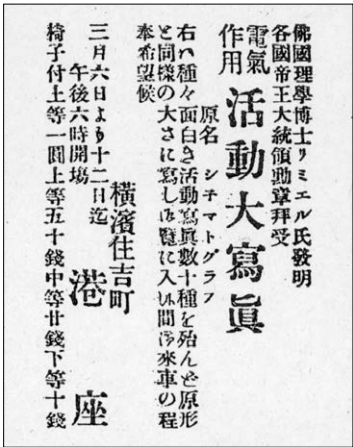 佛國理學博士リミエル氏發明
各國帝王大統領勳章拜受
電氣
作用
活動大寫眞
原名 シチマトグラフ
右ハ種々面白き活動寫眞數十種を殆んど原形
と同樣の大さに寫し御覽に入れ候間御來車の程
奉希望候
横濱住吉町
港座
三月六日より十二日迄
午後六時開塲
椅子付上等一圓上等五十錢中等廿錢下等十錢